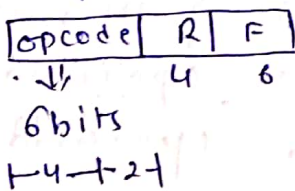 opcode R F
4 6
6bits
4 2